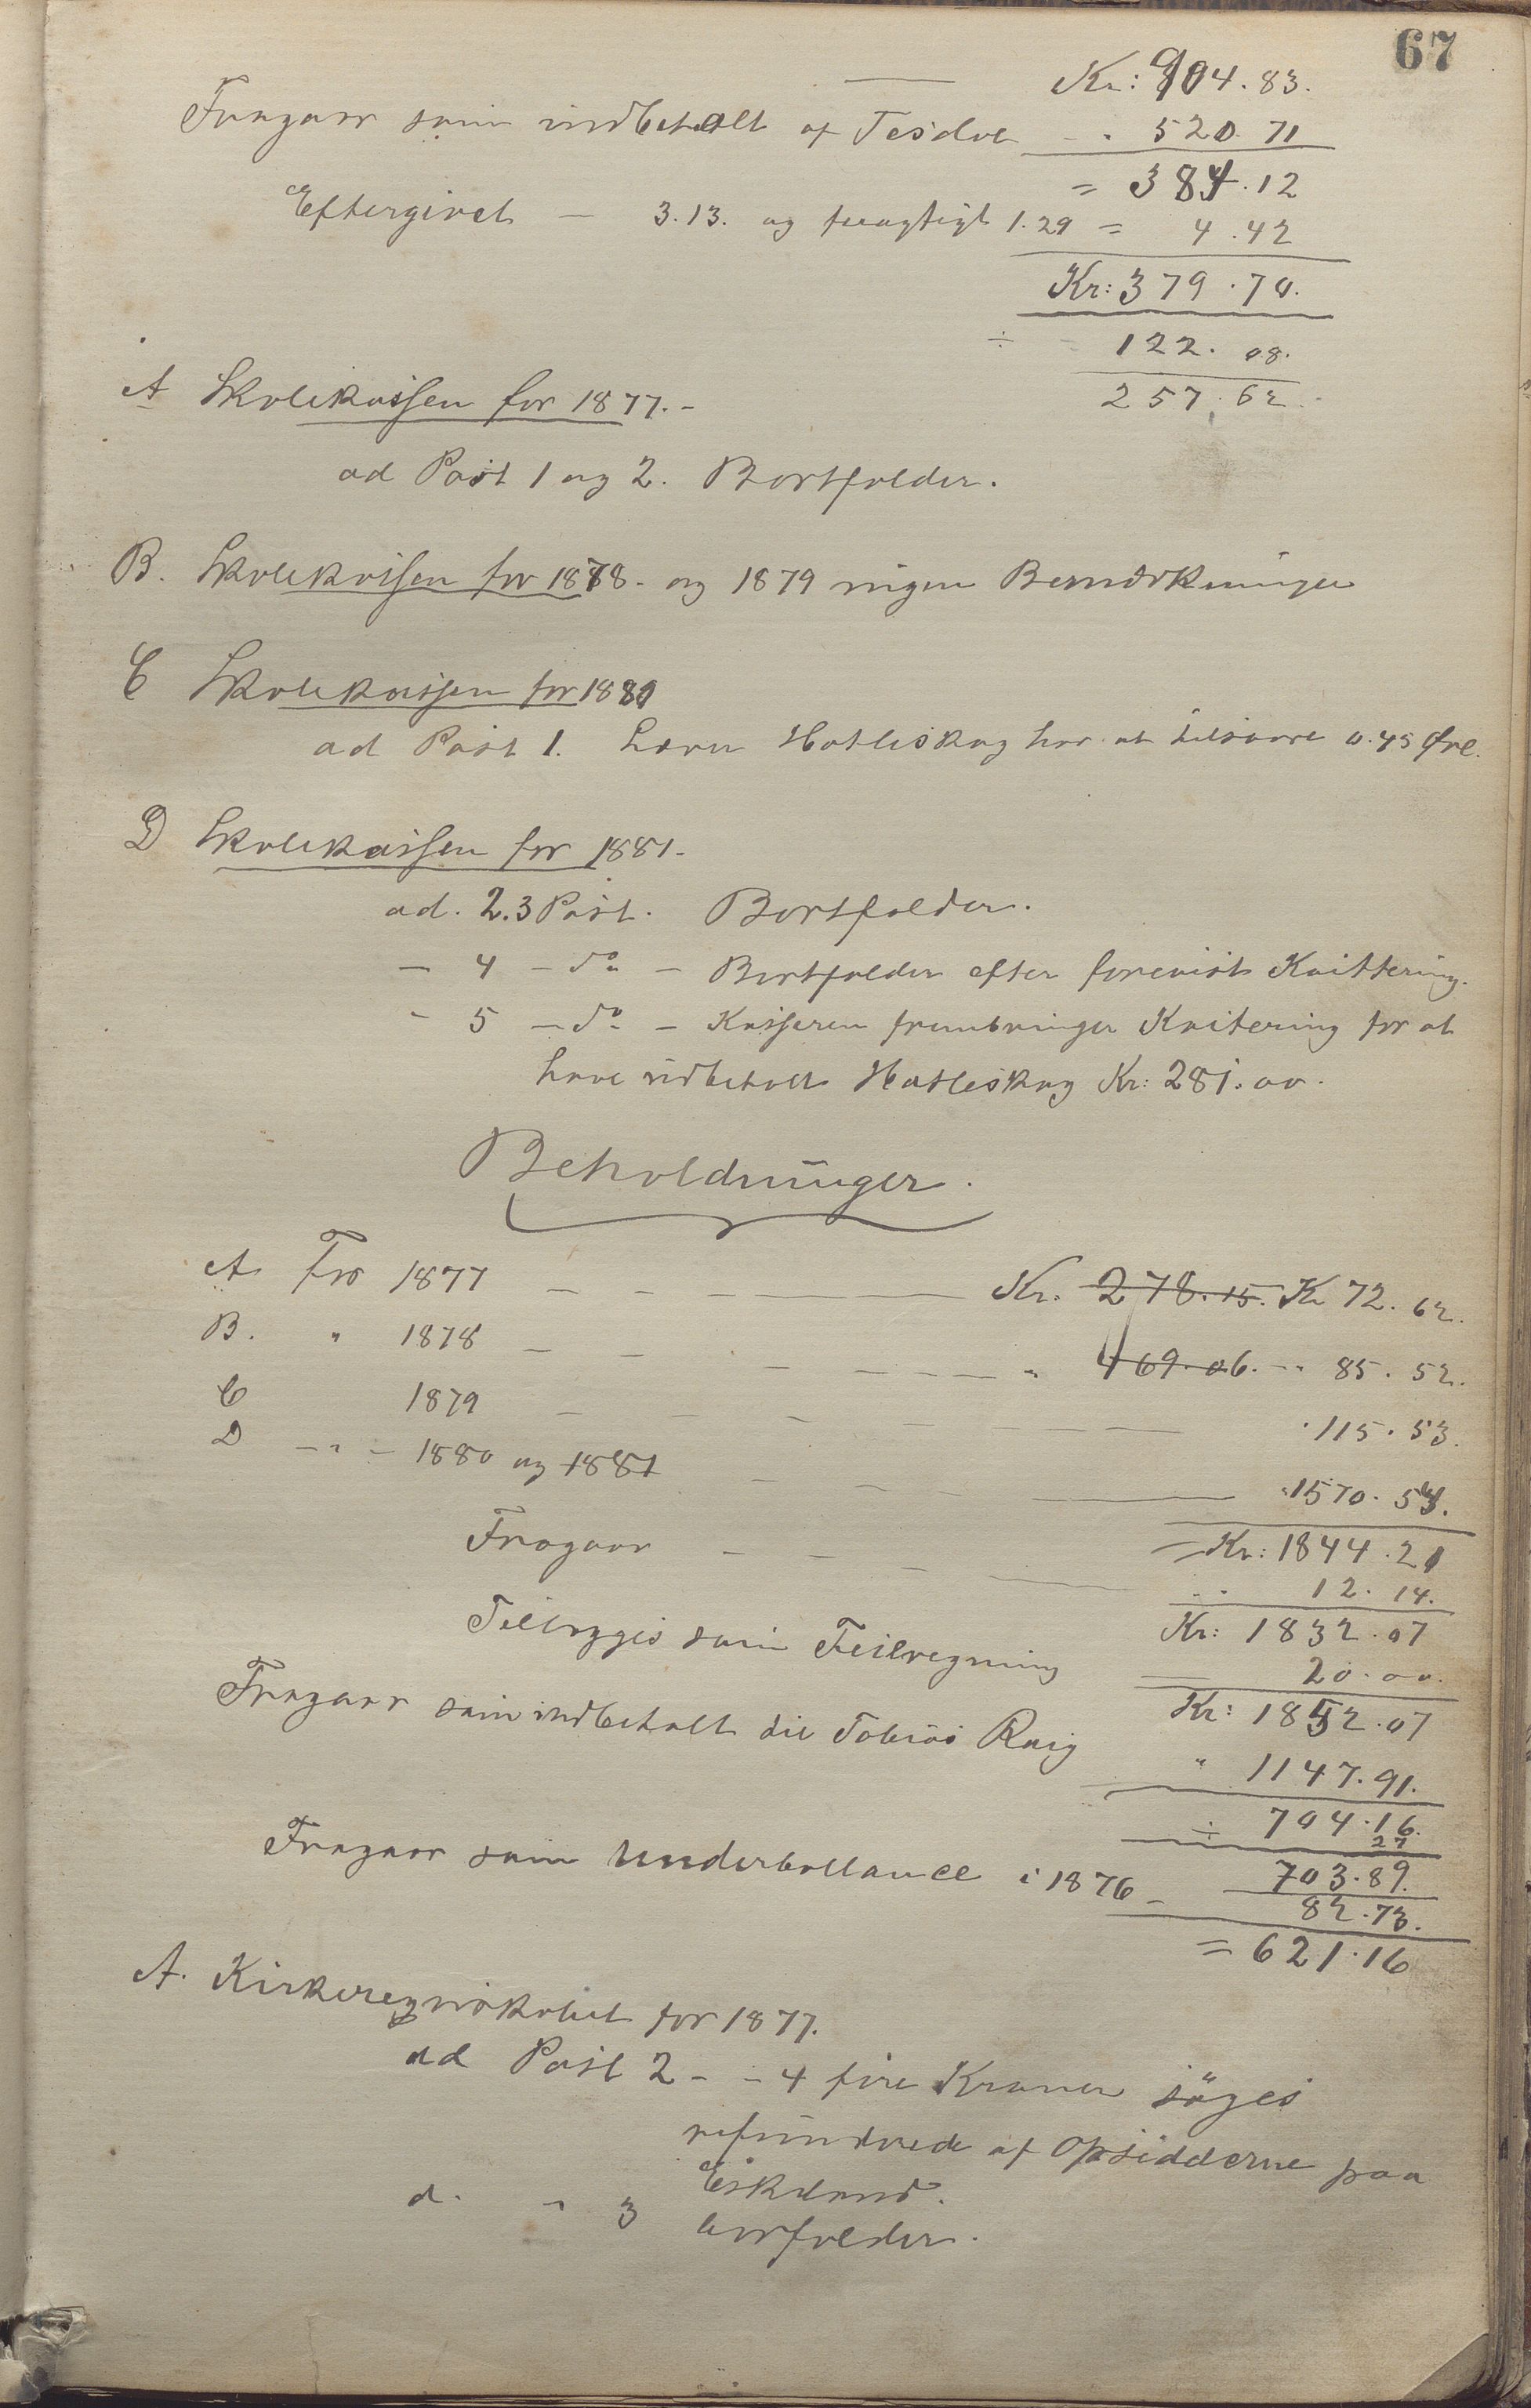 67
Kr: 904.83.
Fragaar som indbetalt af Tesdal - " 520.71
= 384.12
Eftergivet - 3.13. og feragtigt 1.29 = 4.42
Kr: 379.70.
÷ 122.08.
257.62
A Skolekassen for 1877.-
ad Post 1 og 2. Bortfalder.
B. Skolekassen for 1878- og 1879 ingen Bemærkninger
C Skolekassen for 1880
ad Post 1. Lærer Hatleskog har at tilsvare 0.45 Øre.
D Skolekassen for 1881-
ad. 2.3 Post. Bortfalder.
- 4 - do - Bortfalder efter forevist Kvittering.
- 5 - do - Kasseren frembringer Kvitering for at
have udbetalt Hatleskog Kr: 281.00.
Beholdninger.
A Fra 1877 - - - Kr. 278.15. Kr 72.62.
B. " 1878 - - - " 469.06. - " 85.52.
C 1879 - - - " 115.53.
D - " - 1880 og 1881 - - - " 1570.54.
= Kr: 1844.21
Fragaar - - - 12.14.
Kr: 1832.07
Tillægges som Feilregning 20.00.
Kr: 1852.07
Fragaar som indbetalt til Tobias Røig " 1147.91.
÷ 704.16.
27
703.89.
Fragaar som Underballance i 1876 - 82.73.
= 621.16
A. Kirkeregnskabet for 1877.
ad Post 2 - - 4 fire Kroner søges
refunderede af Opsidderne paa
Eskeland.
d. " 3 borfalder.